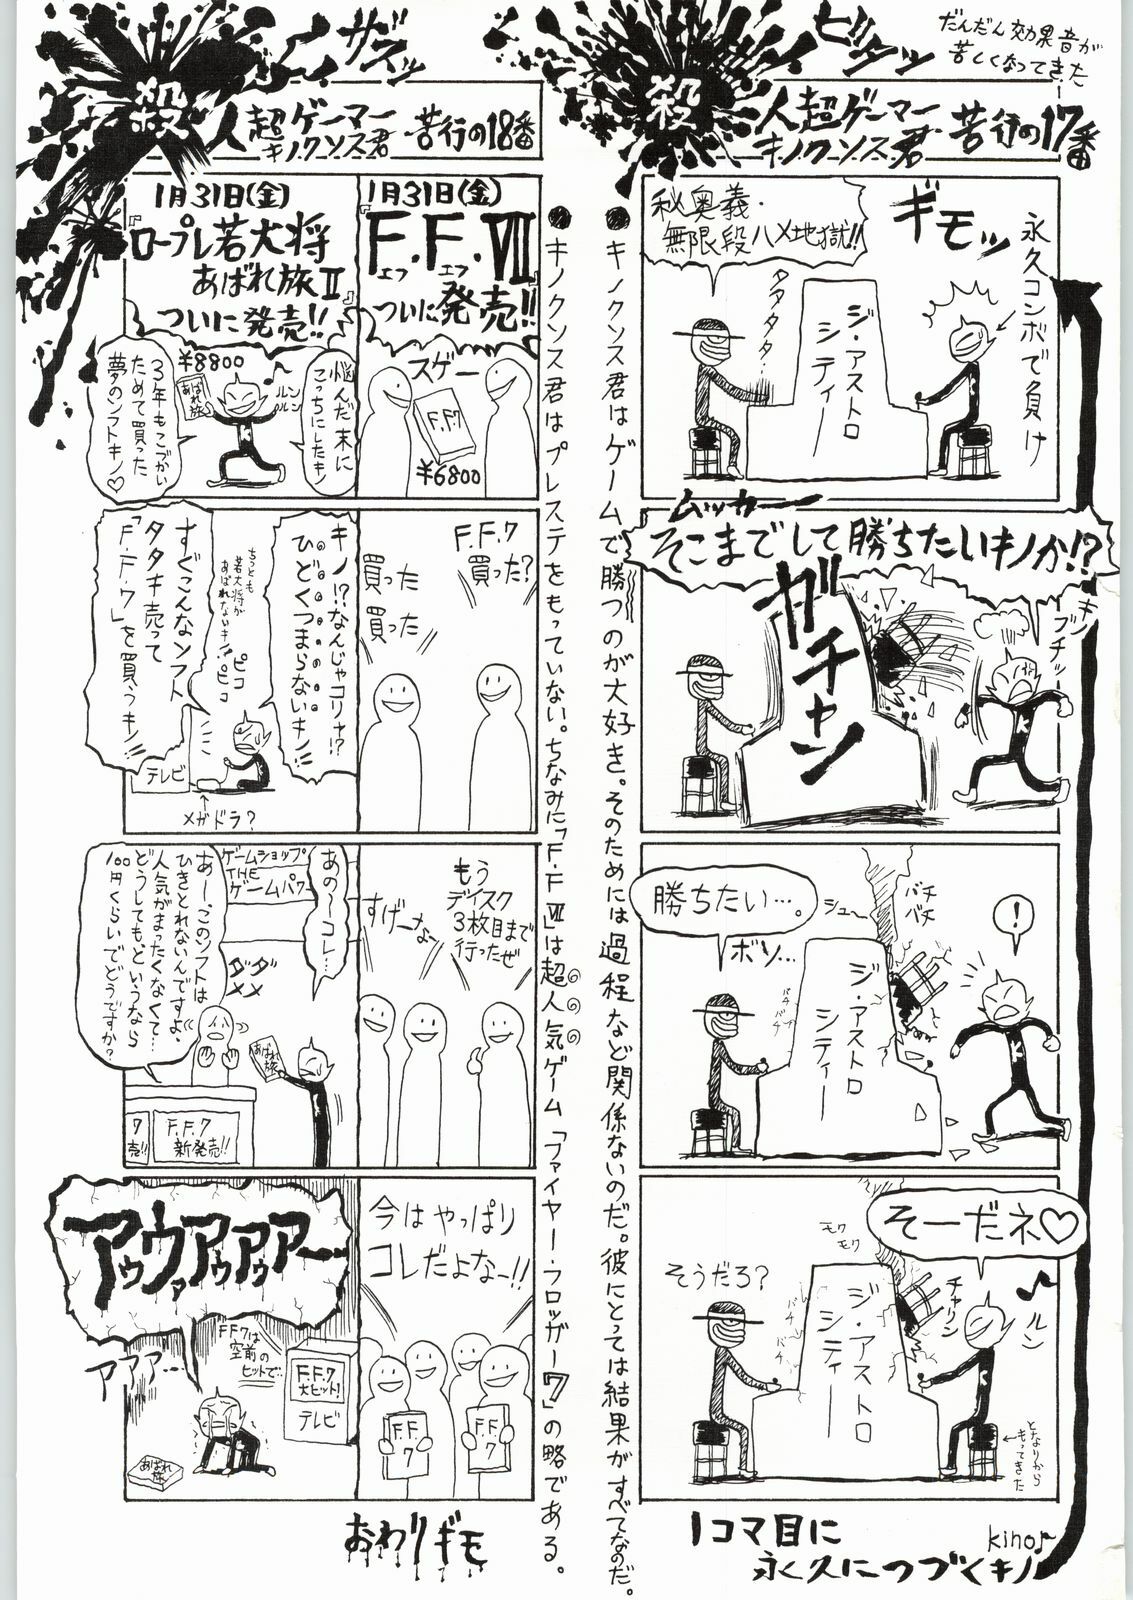 だんだん効果音が
苦しくなってきた
ピタッ
殺人超ゲーマー
キノクソス君
苦行の17番
秘奥義・
無限段ハメ地獄!!
タタタタタ…
ジ・アストロ
シティー
ギモッ
永久コンボで負け
ムッカー
そこまでして勝ちたいキノか!?
ガチャン
キノ
ブチッ
勝ちたい…。
ボソ…
シュ〜
バチ
バチ
バチ
バチ
バチ
ジ・アストロ
シティー
!
そーだネ♡
モク
モク
そうだろ?
バチ
バチ
ジ・アストロ
シティー
チャリン
♪ルン
となりから
もってきた
1コマ目に
永久につづくキノ
kino♪
●キノクソス君はゲームで勝つのが大好き。そのためには過程など関係ないのだ。彼にとっては結果がすべてなのだ。
ザスッ
殺人超ゲーマー
キノクソス君
苦行の18番
1月31日(金)
F.F.Ⅶ
エフ エフ
ついに発売!!
スゲー
F.F.7
¥6800
1月31日(金)
『ロープレ若大将
あばれ旅Ⅱ』
ついに発売!!
悩んだ末に
こっちにしたキノ
♪ルン
ルン
¥8800
あばれ
旅
K
3年もこづかい
ためて買った
夢のソフトキノ♡
F.F.7
買った?
買った
買った
キノ!?なんじゃコリャ!?
ひどくつまらないキノ!!
ちっとも
若大将が
あばれないキノ!!
ピコ
ピコ
すぐこんなソフト
タタキ売って
「F.F.7」を買うキノ!!
テレビ
メガドラ?
もう
ディスク
3枚目まで
行ったぜ
すげーなー
あの〜コレ…
ゲームショップ
THE
ゲームパワー
ダダ
メメ
あー、このソフトは
ひきとれないんですよ、
人気がまったくなくて…
どうしても、というなら
100円くらいでどうですか?
あばれ
旅
K
F.F.7
新発売!!
7
売!!
今はやっぱり
コレだよなー!!
F.F.
7
F.F.
7
アゥウァアゥアゥアー
アアアー…
FF7は
空前の
ヒットで…
F.F.7
大ヒット!
テレビ
あばれ
旅
おわりギモ
●キノクソス君はプレステをもっていない。ちなみに「F.F.Ⅶ」は超人気ゲーム「ファイヤー・フロッガー7」の略である。